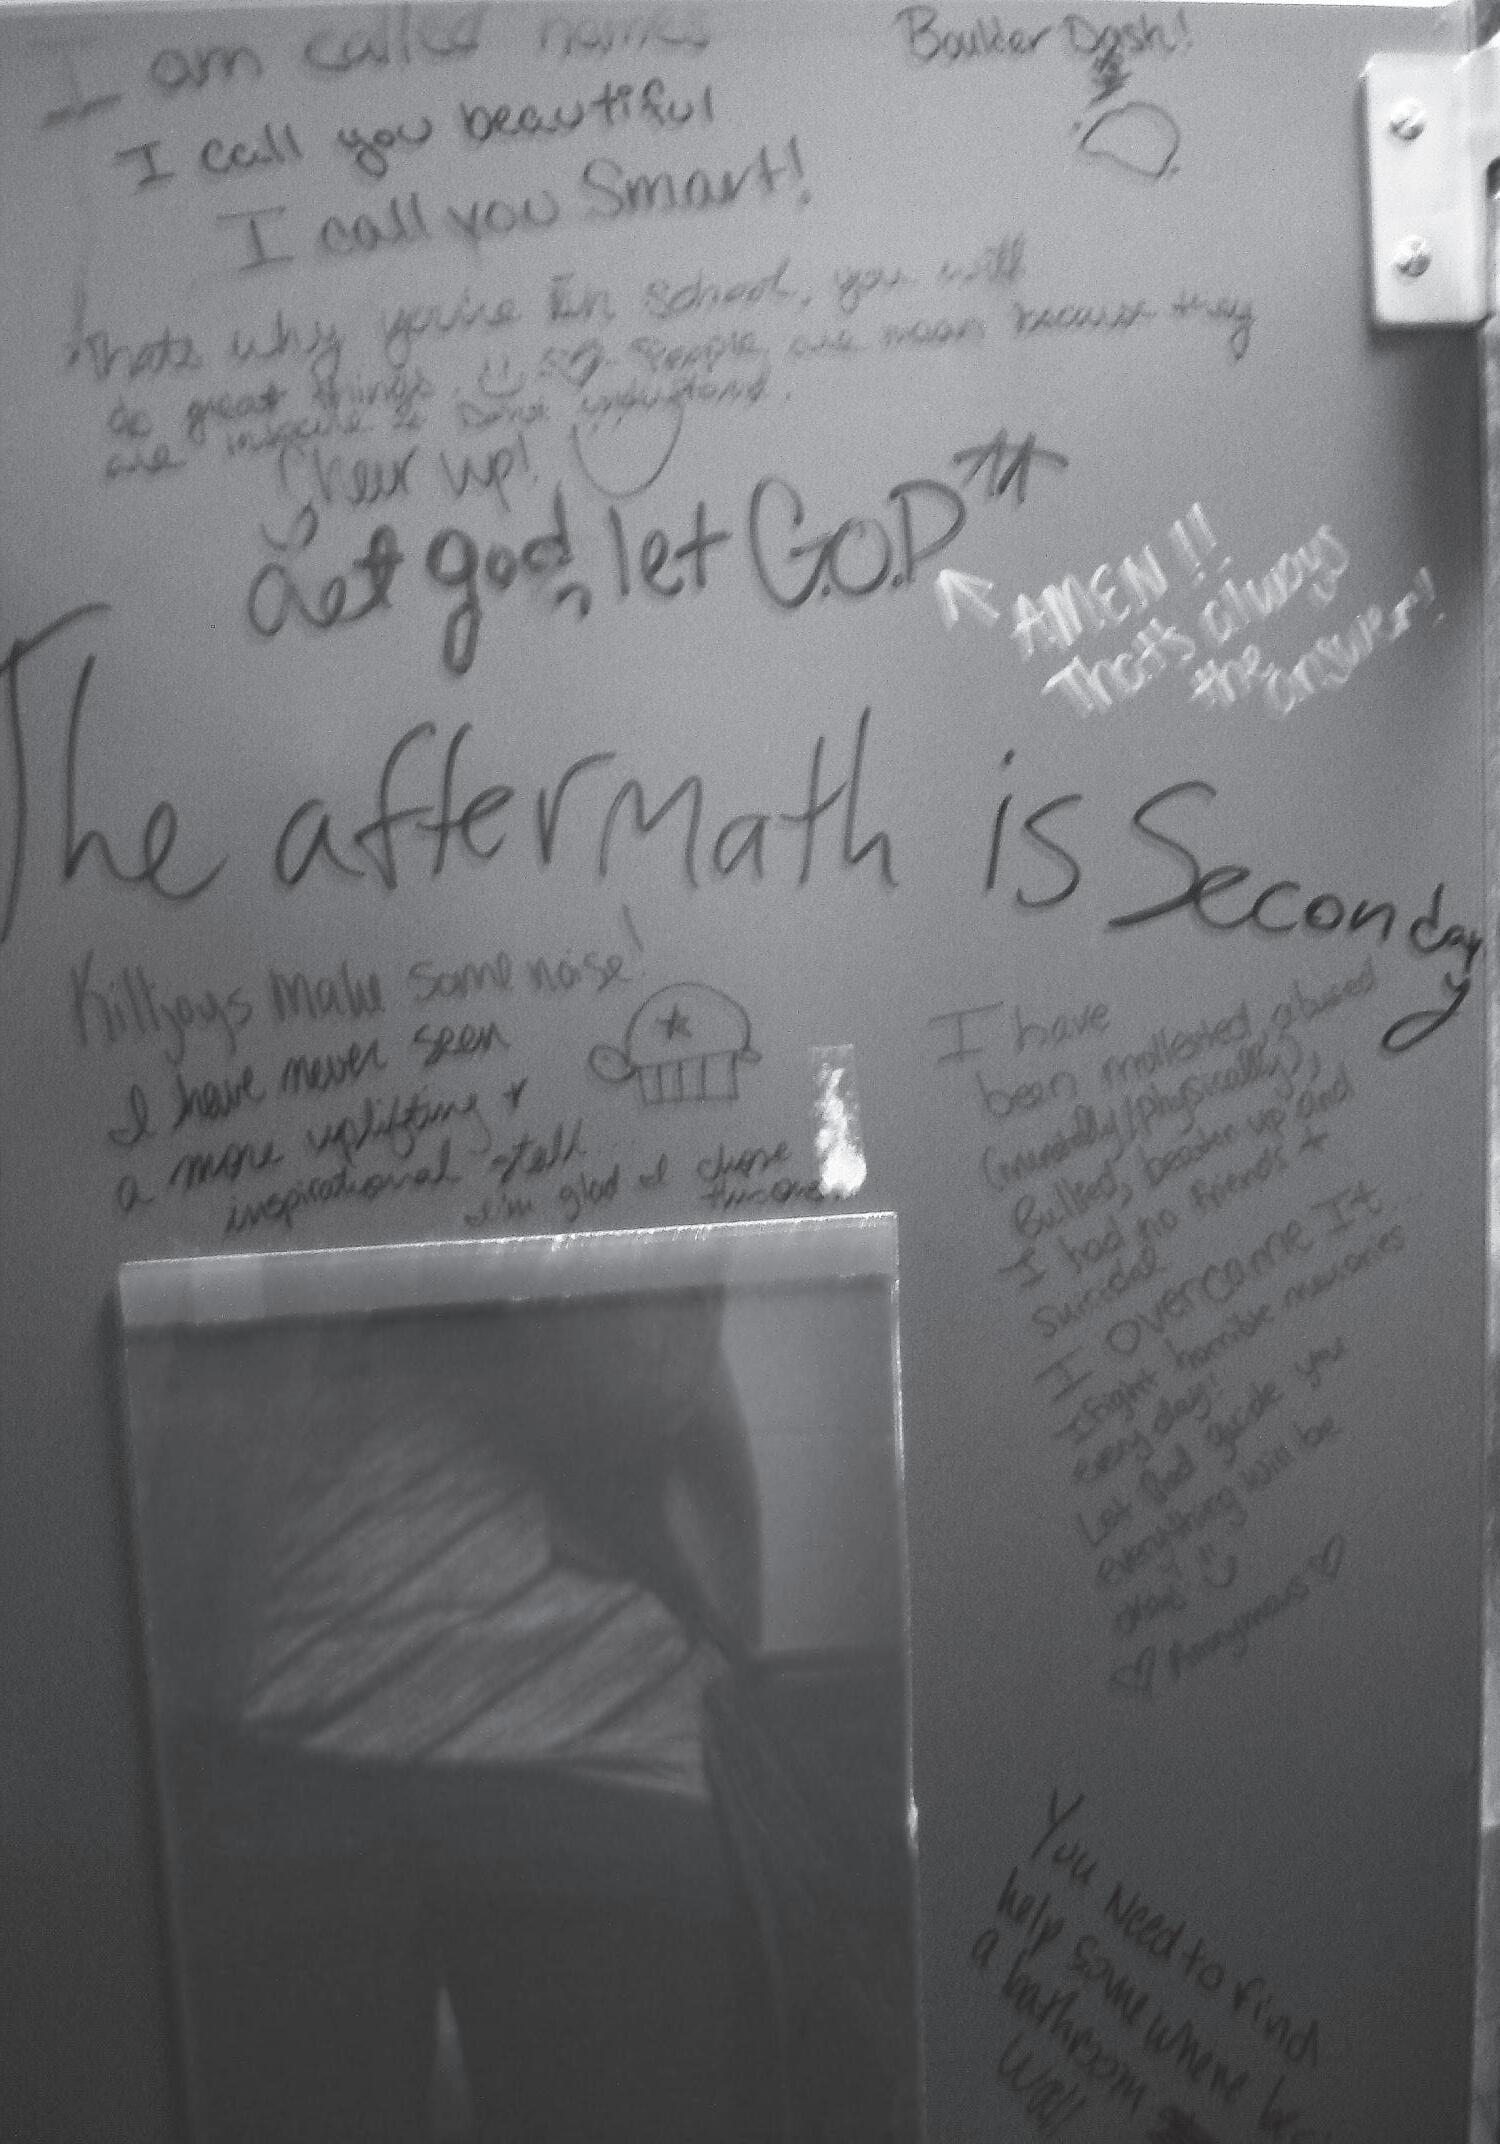 I am called names
I call you beautiful
I call you Smart!
Boulder Dash!
Thats why you're in school, you will
do great things. People are mean because they
are insecure & Don't understand.
Chear up!
Let god, let G.O.D
AMEN!!
That's always
the answer!
The afterMath is Seconday
y
Killjoys Make Some noise!
I have never seen
a more uplifting &
inspirational stall...
I'm glad I chose
this one.
I have
been molested, abused
(mentally/physically),
Bullied, beaten up and
I had no friends +
suicidal
I OVERCAME It
I fight horrible memories
every day!
Let God guide you
everything will be
okay
Anonymous
You Need to find
help somewhere
a bathroom
Wall